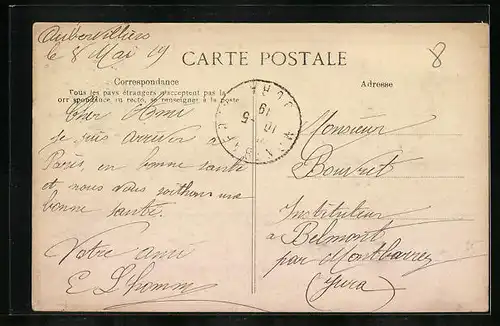 Aubervilliers
le 8 Mai 09
CARTE POSTALE
8
Correspondance
Tous les pays étrangers n'acceptent pas la
correspondance au recto, se renseigner à la poste
Adresse
Cher Ami
je suis arriver à
Paris, en bonne santé
et nous vous souhaitons une
bonne santé.
Votre ami
E Lhomm
JURA
Monsieur
Bouvret
Instituteur
à Belmont
par Montbarrey
(Jura)